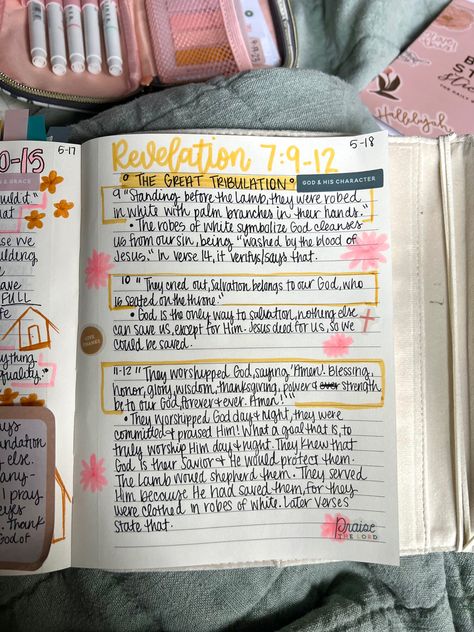 5-17
5-18
Revelation 7:9-12
0-15
& GRACE
THE GREAT TRIBULATION
GOD & HIS CHARACTER
9 "Standing before the Lamb, they were robed
in white with palm branches in their hands."
• The robes of white symbolize God cleanses
us from our sin, being "washed by the blood of
Jesus." In verse 14, it verifys/says that.
10 "They cried out, Salvation belongs to our God, who
is seated on the throne."
• God is the only way to salvation, nothing else
can save us, except for Him. Jesus died for us, so we
could be saved.
GIVE
THANKS
11-12 "They worshipped God, saying 'Amen! Blessing,
honor, glory, wisdom, thanksgiving, power & over strength
be to our God forever & ever. Amen!'"
• They worshipped God day & night, they were
committed & praised Him! What a goal that is, to
truly worship Him day & night. They knew that
God is their Savior & He would protect them.
The Lamb would shepherd them. They served
Him because He had saved them, for they
were clothed in robes of white. Later verses
state that.
Praise
THE LORD
uld it"
at
we
ulding
have
FULL
ife
ything
equality."
ays
undation
y else.
any-
I pray
eyes
Thank
God of
Hallelujah